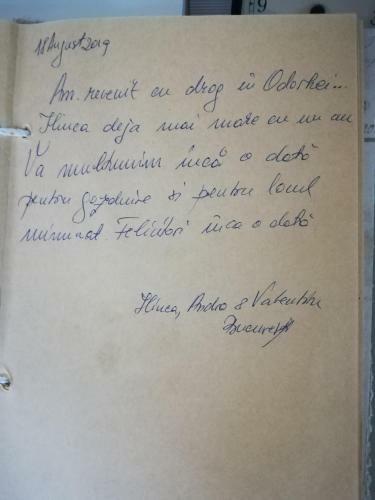 18 August 2019
Am revenit cu drag in Odorhei...
Ilinca deja mai mare cu un an
Va multumim încă o dată
pentru găzduire si pentru locul
minunat. Felicitări înca o dată
Ilinca, Andra & Valentin
București
9